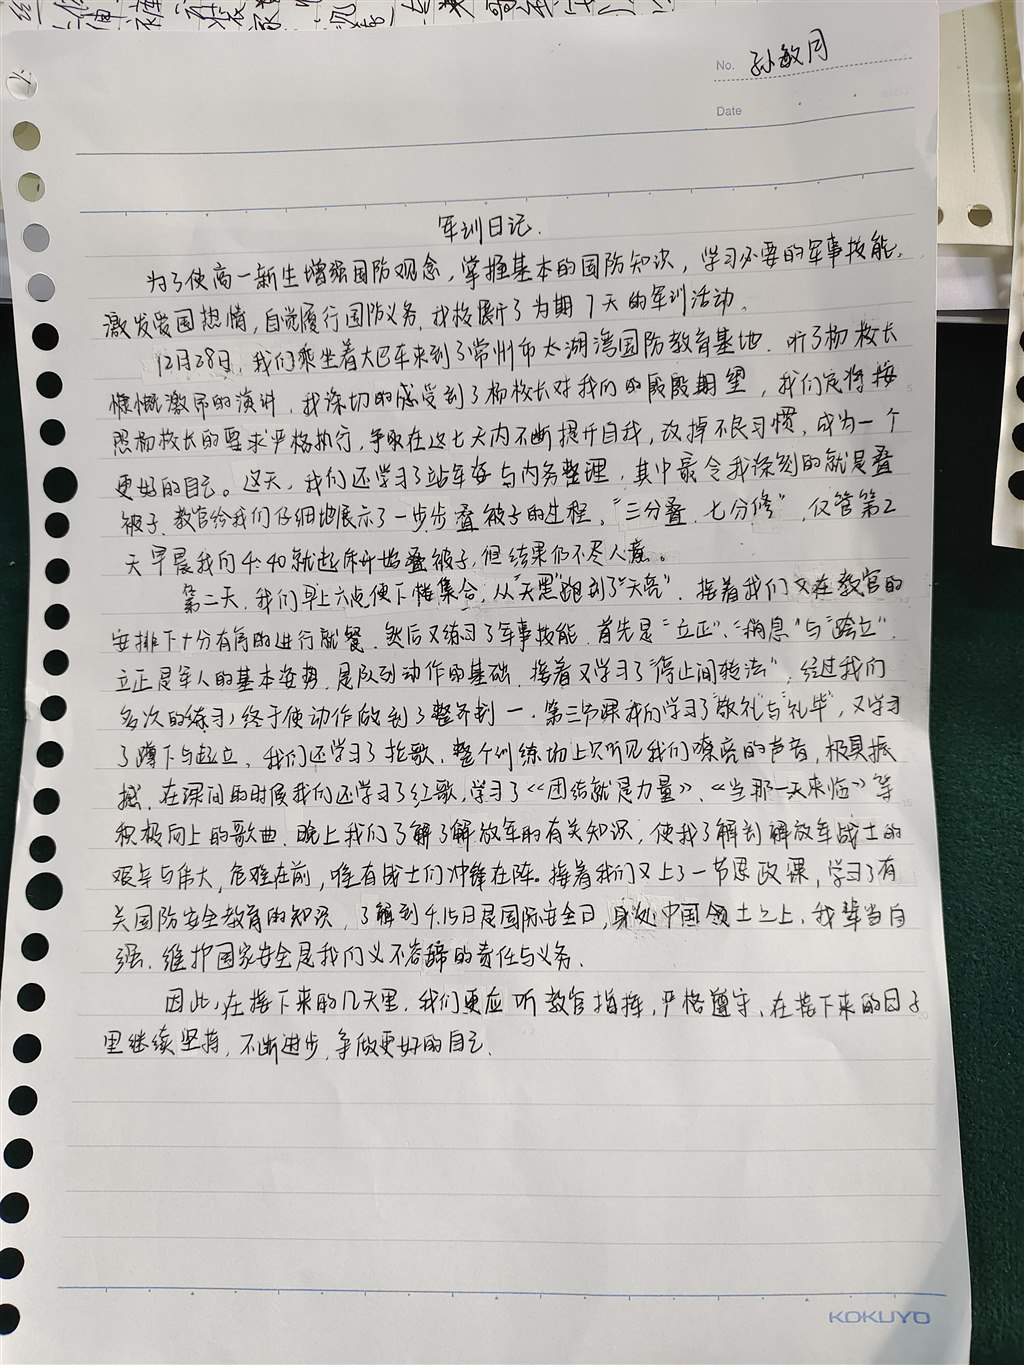 No. 孙敏月
Date
军训日记.
为了使高一新生增强国防观念，掌握基本的国防知识，学习必要的军事技能，
激发爱国热情，自觉履行国防义务，我校展开了为期7天的军训活动。
12月28日，我们乘坐着大巴车来到了常州市太湖湾国防教育基地．听了杨校长
慷慨激昂的演讲，我深切的感受到了杨校长对我们的殷殷期望，我们定将按
照杨校长的要求严格执行，争取在这七天内不断提升自我，改掉不良习惯，成为一个
更好的自己。这天，我们还学习了站军姿与内务整理，其中最令我深刻的就是叠
被子．教官给我们仔细地展示了一步步叠被子的过程，“三分叠．七分修”，仅管第2
天早晨我们4:40就起床开始叠被子，但结果仍不尽人意。
第二天，我们早上六点便下楼集合，从“天黑”跑到了“天亮”．接着我们又在教官的
安排下十分有序的进行就餐．然后又练习了军事技能．首先是“立正”、“稍息”与“跨立”．
立正是军人的基本姿势，是队列动作的基础．接着又学习了“停止间转法”，经过我们
多次的练习，终于使动作做到了整齐划一．第三节课我们学习了“敬礼”与“礼毕”，又学习
了蹲下与起立，我们还学习了拉歌，整个训练场上只听见我们嘹亮的声音，极具振
撼．在课间的时候我们还学习了红歌，学习了《团结就是力量》、《当那一天来临》等
积极向上的歌曲．晚上我们了解了解放军的有关知识，使我了解到解放军战士的
艰辛与伟大，危难在前，唯有战士们冲锋在阵。接着我们又上了一节思政课，学习了有
关国防安全教育的知识，了解到4.15日是国际安全日，身处中国领土之上，我辈当自
强．维护国家安全是我们义不容辞的责任与义务．
因此，在接下来的几天里，我们更应听教官指挥，严格遵守，在接下来的日子
里继续坚持，不断进步，争做更好的自己．
KOKUYO